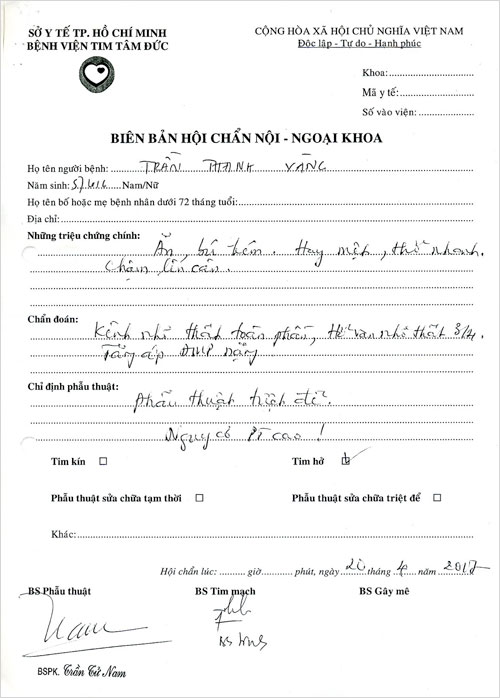 SỞ Y TẾ TP. HỒ CHÍ MINH
BỆNH VIỆN TIM TÂM ĐỨC
CỘNG HÒA XÃ HỘI CHỦ NGHĨA VIỆT NAM
Độc lập - Tự do - Hạnh phúc
Khoa:
Mã y tế:
Số vào viện:
BIÊN BẢN HỘI CHẨN NỘI - NGOẠI KHOA
Họ tên người bệnh: TRẦN THANH VÂNG
Năm sinh: Nam/Nữ
Họ tên bố hoặc mẹ bệnh nhân dưới 72 tháng tuổi:
Địa chỉ:
Những triệu chứng chính:
Ăn, bú kém. Hay mệt, thở nhanh.
Chậm lên cân.
Chẩn đoán:
Kênh nhĩ thất toàn phần, Hở van nhĩ thất 3/4.
Tăng áp ĐMP nặng
Chỉ định phẫu thuật:
Phẫu thuật triệt để.
Nguy cơ PT cao!
Tim kín
Tim hở
Phẫu thuật sửa chữa tạm thời
Phẫu thuật sửa chữa triệt để
Khác:
Hội chẩn lúc: giờ phút, ngày 20 tháng 4 năm 2017
BS Phẫu thuật
BS Tim mạch
BS Gây mê
Nam
BS
BSPK. Trần Tử Nam